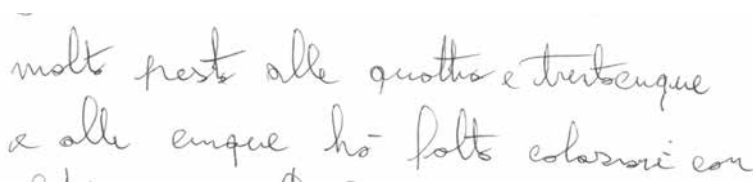 molto presto alle quattro e trentacinque
e alle cinque ho fatto colazione con